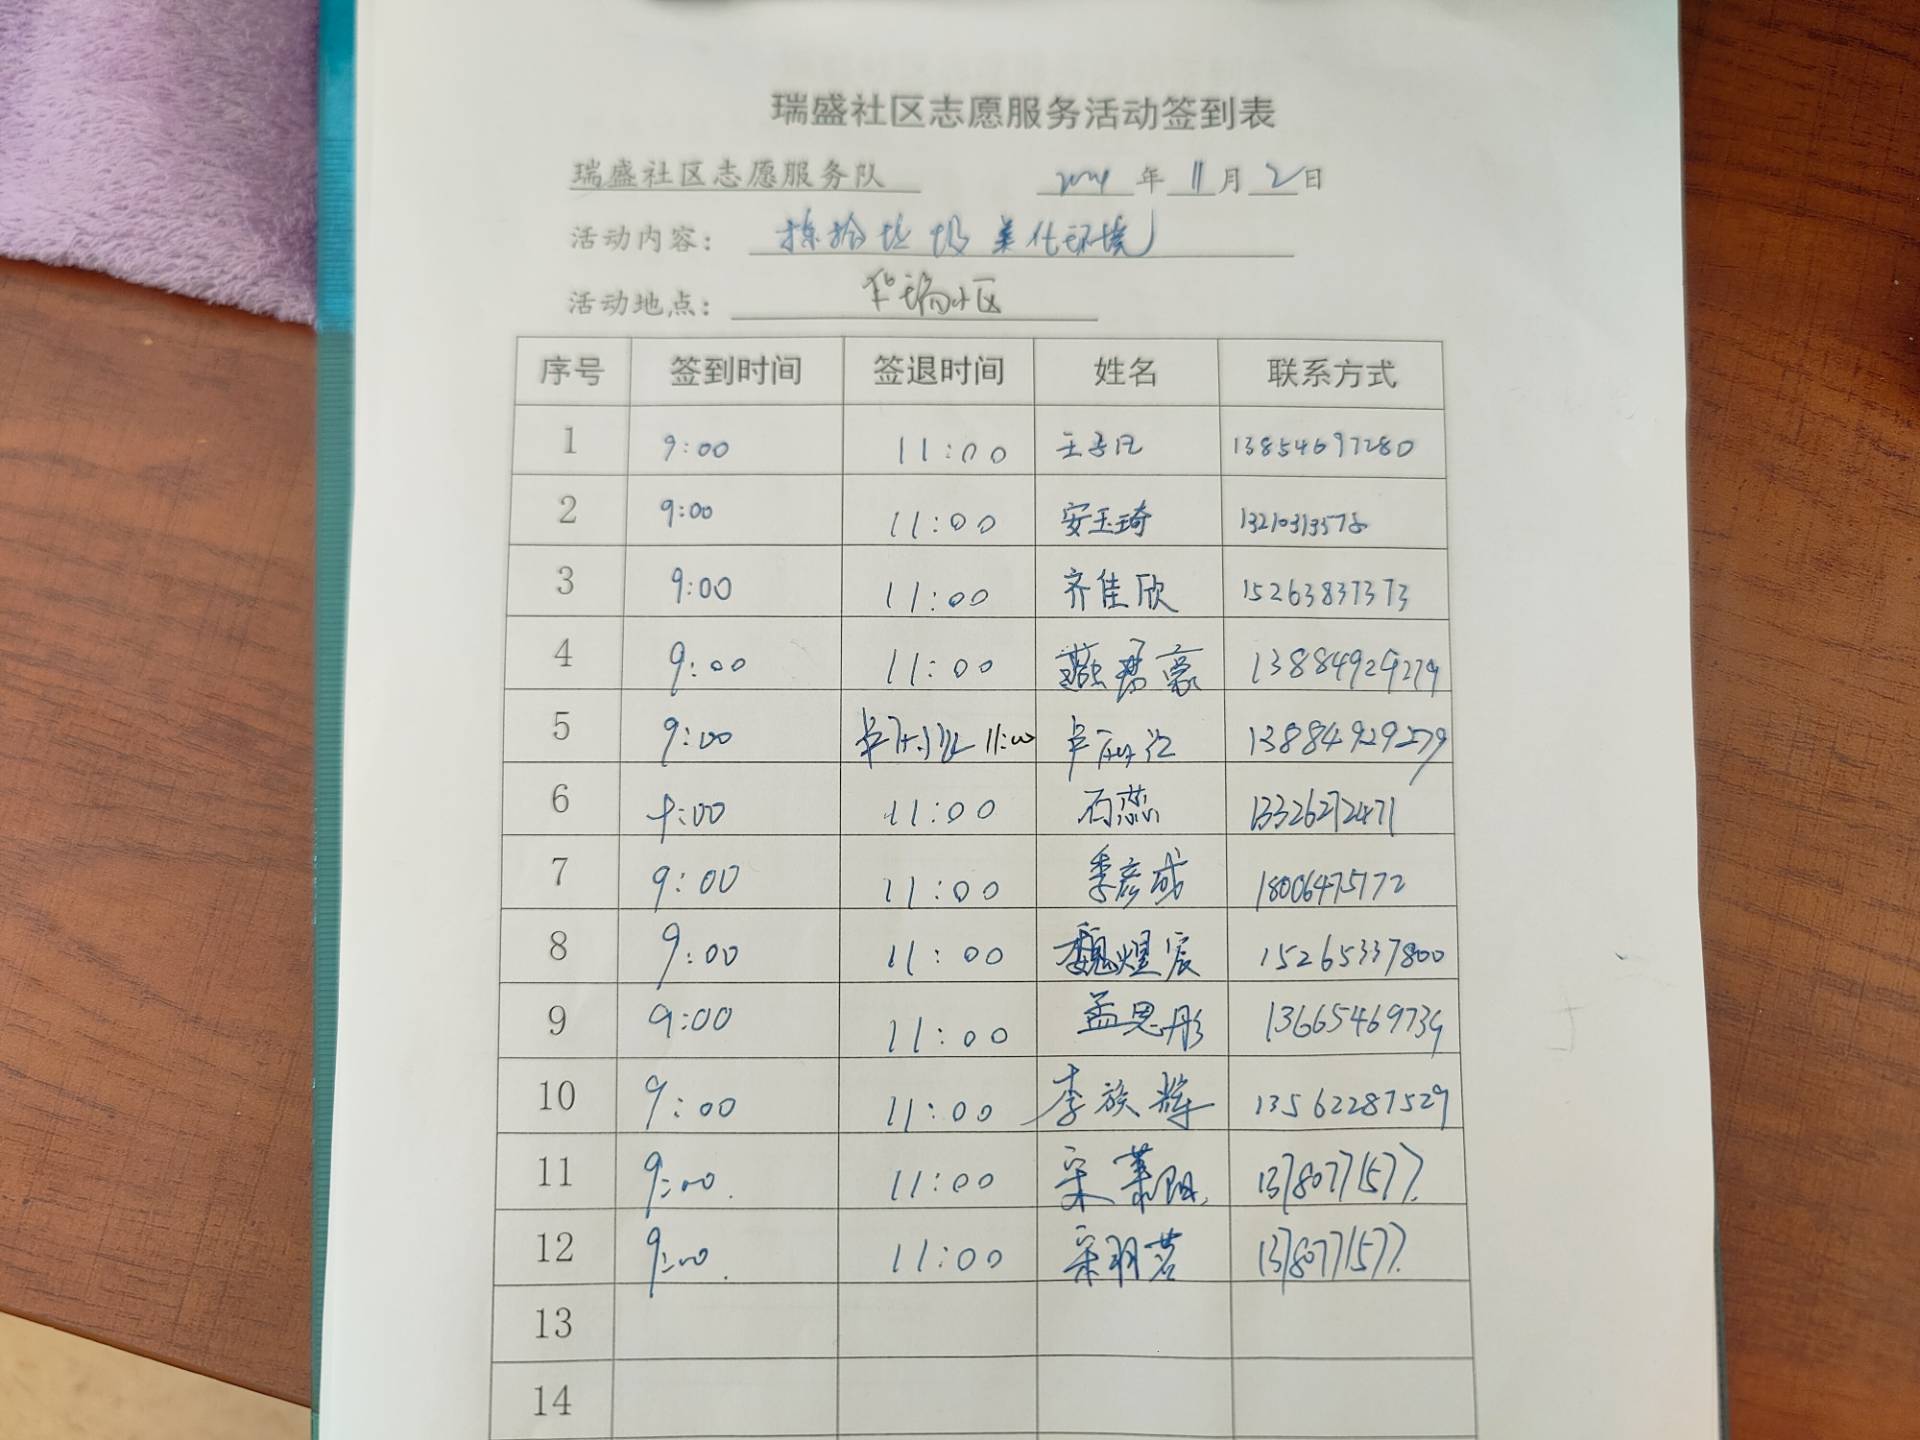 瑞盛社区志愿服务活动签到表
瑞盛社区志愿服务队 2024 年 11 月 2 日
活动内容： 捡拾垃圾 美化环境
活动地点： 华瑞小区
序号 签到时间 签退时间 姓名 联系方式
1 9:00 11:00 王子凡 13854697280
2 9:00 11:00 安玉琦 13210313578
3 9:00 11:00 齐佳欣 15263837373
4 9:00 11:00 豪 13884929279
5 9:00 11:00 13884929279
6 9:00 11:00 石蕊 13326272471
7 9:00 11:00 季彦成 18006475172
8 9:00 11:00 魏煜宸 15265337800
9 9:00 11:00 孟思彤 13665469739
10 9:00 11:00 李族辉 13562287529
11 9:00 11:00 宋 阳 13780771577
12 9:00 11:00 宋羽茗 13780771577
13
14